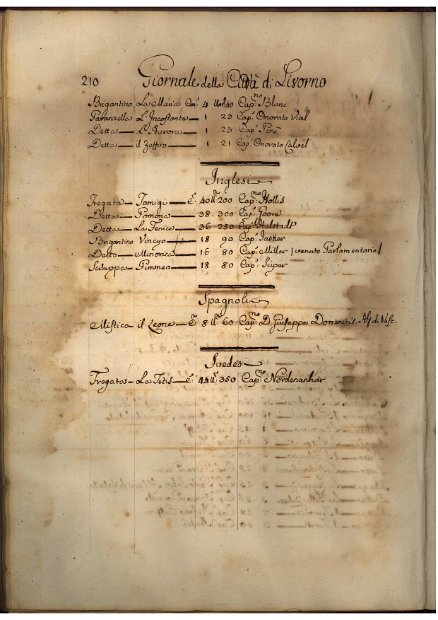 210 Giornale della Città di Livorno
Brigantino La Maria Can 4 Uo 50 Capno Blanc
Paranzella L'Incostante 1 23 Capo Onorato Vial
Detta L'Aurora 1 23 Capo
Detta il Zeffiro 1 21 Capo Onorato
Inglesi
Fregata Tamigi C. 40 U. 200 Capno Hollis
Detta Pomona 38. 300 Capo
Detta La Fenice 36 250 Capo Halstadt
Brigantino 18 90 Capo
Detto Minorca 16 80 Capno Miller / venuto Parlamentario /
Sciloppa 18 80 Capo
Spagnoli
Mistico il Leone C. 8 U. 60 Capno D. Giuseppe Domenico
Svedesi
Fregata La Tetis C. 44 U. 350 Capno